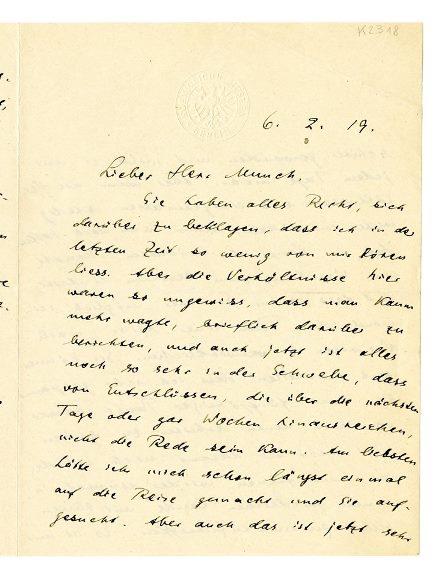 K2318
6. 2. 19.
Lieber Herr Munch,
Sie haben alles Recht, sich
darüber zu beklagen, dass ich in der
letzten Zeit so wenig von mir hören
liess. Aber die Verhältnisse hier
waren so ungewiss, dass man kaum
mehr wagte, brieflich darüber zu
berichten, und auch jetzt ist alles
noch so sehr in der Schwebe, dass
von Entschlüssen, die über die nächsten
Tage oder gar Wochen hinausreichen,
nicht die Rede sein kann. Am liebsten
hätte ich mich schon längst einmal
auf die Reise gemacht und Sie auf-
gesucht. Aber auch das ist jetzt sehr